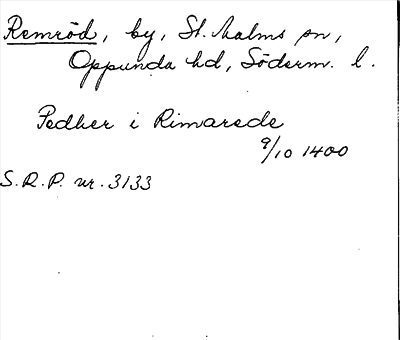 Remröd, by, St. Malms sn,
Oppunda hd, Söderm. l.
Pedher i Rimarede
9/10 1400
S.R.P. nr. 3133